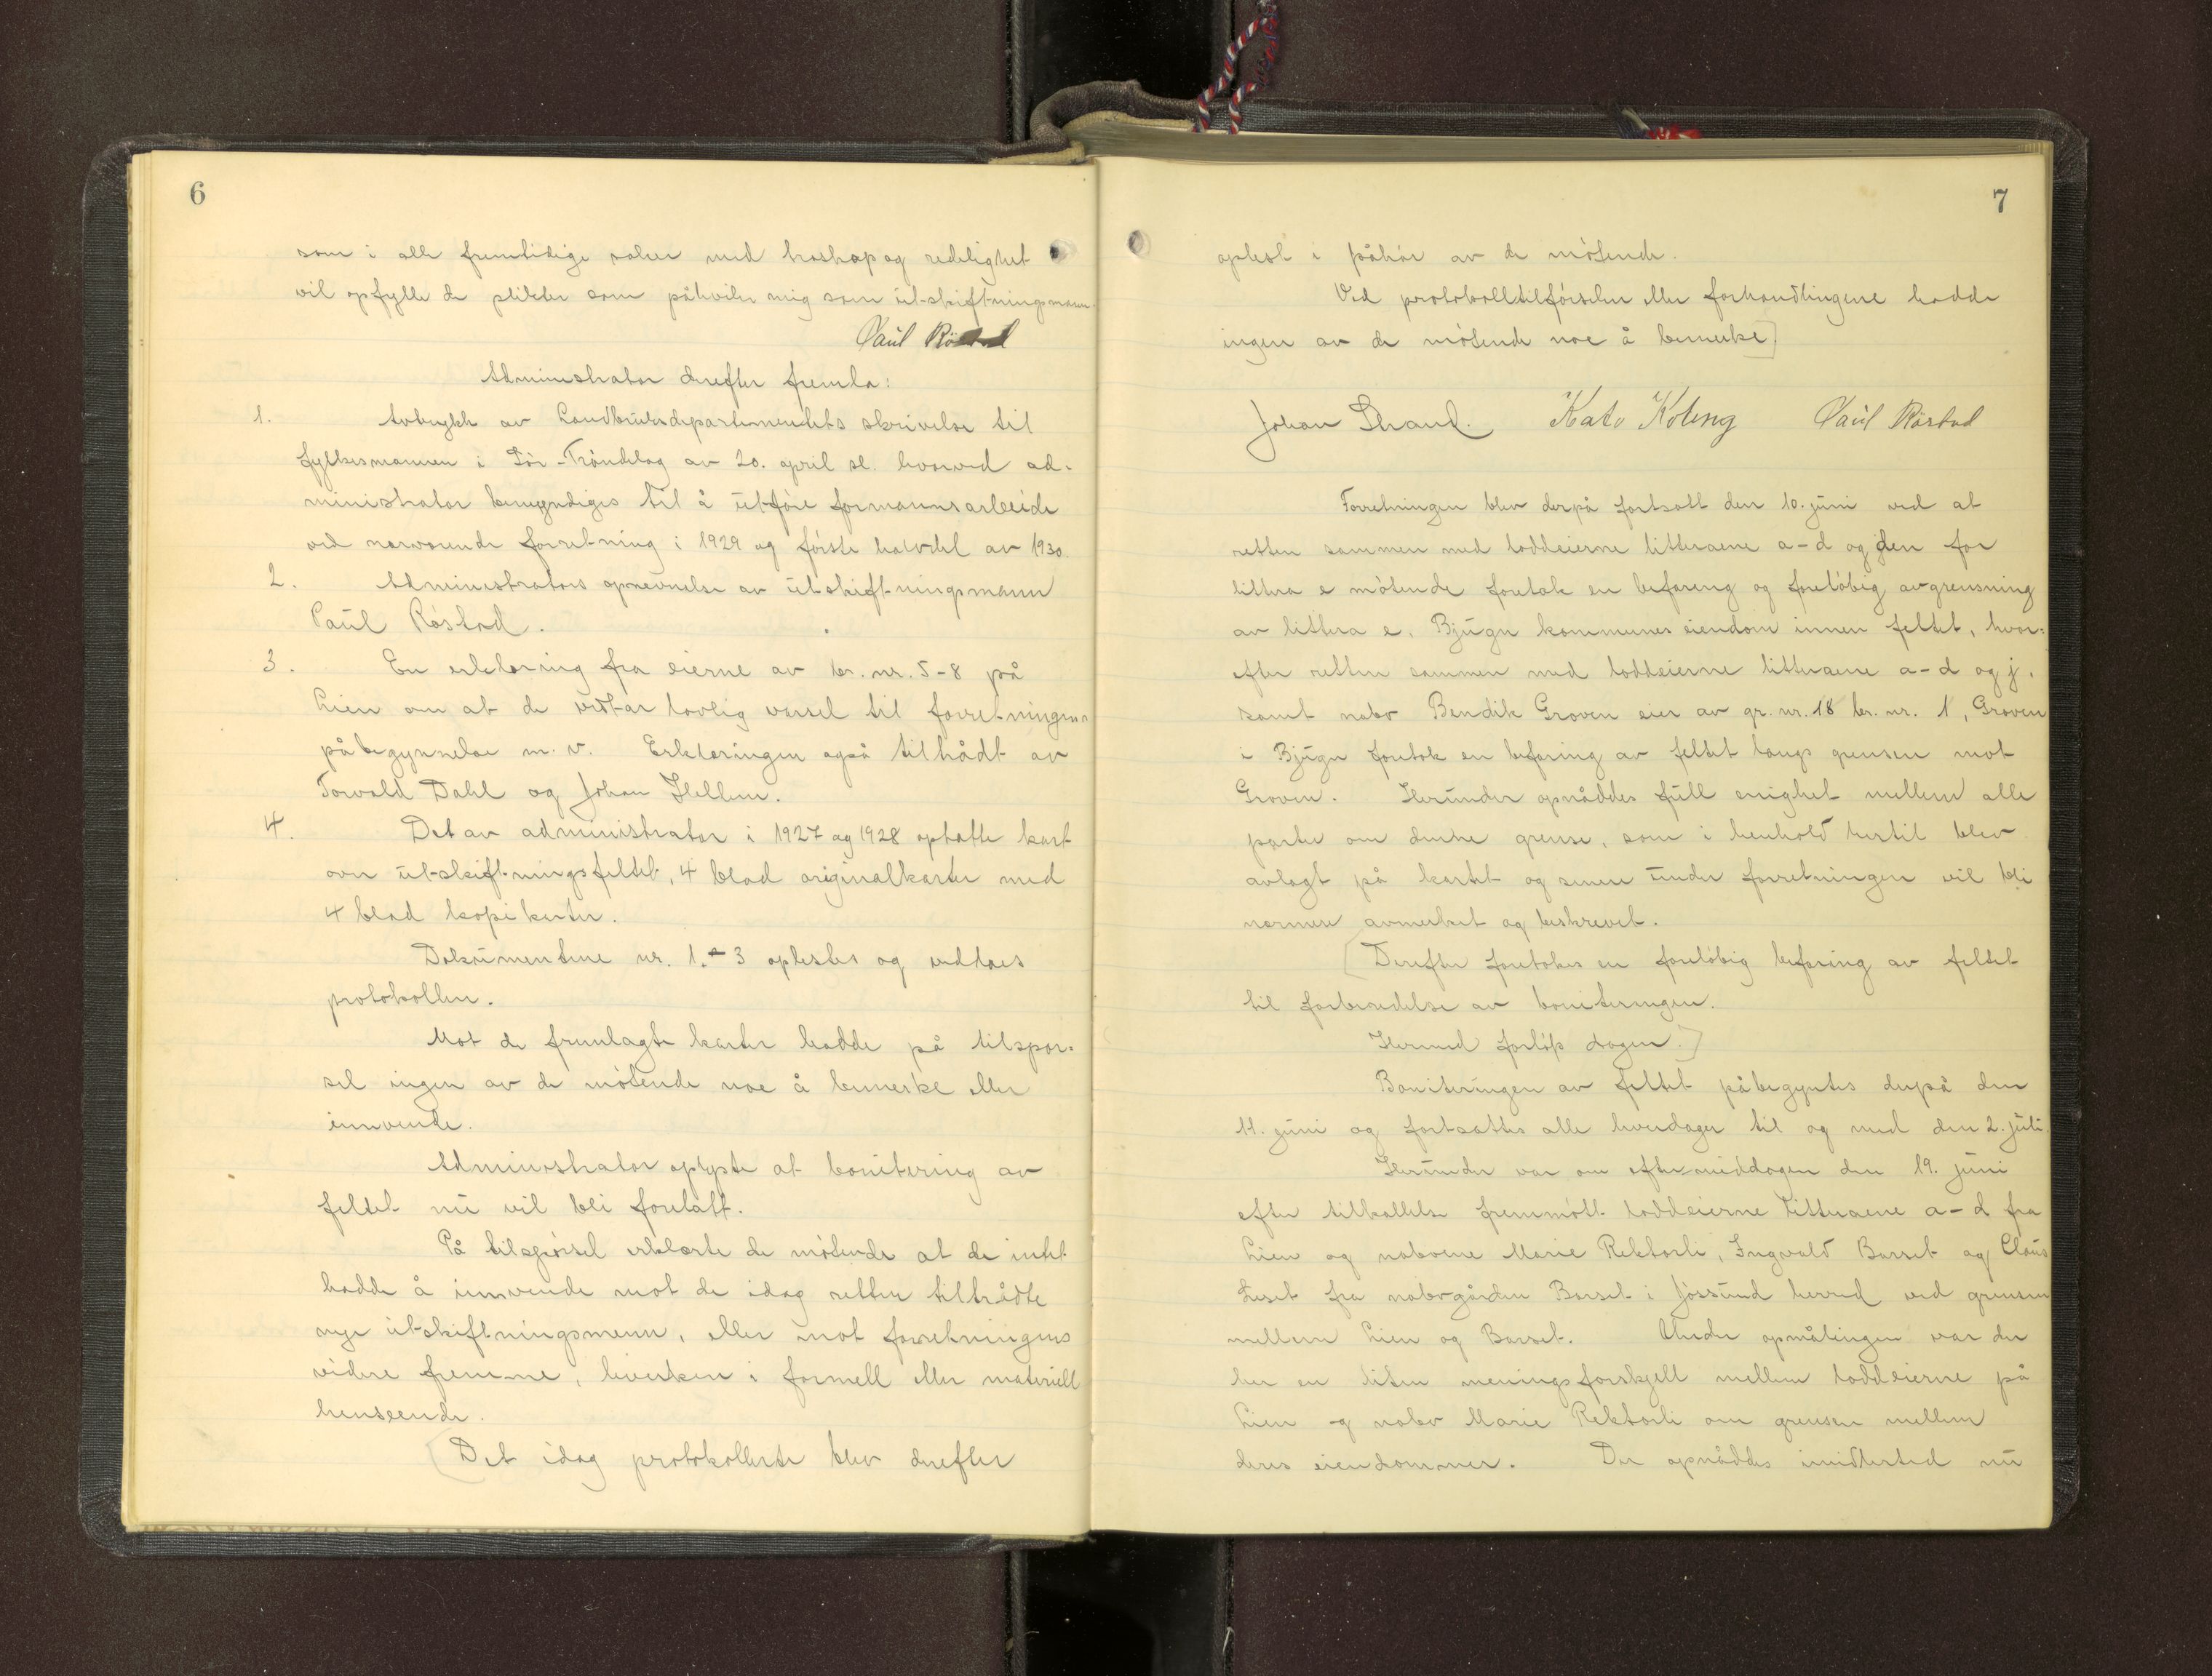 6
som i alle fremtidige saker med troskap og redelighet
vil opfylle de plikter som påhviler mig som utskiftningsmann.
Paul Røstad
Administrator derefter fremla:
1. Avtrykk av Landbruksdepartementets skrivelse til
fylkesmannen i Sør-Trøndelag av 20. april sl. hvorved ad-
ministrator bemyndiges til å utføre formannsarbeide
ved nærværende forretning i 1929 og første halvdel av 1930.
2. Administrators opnevnelse av utskiftningsmann
Paul Røstad.
3. En erklæring fra eierne av br. nr. 5-8 på
Lien om at de vedtar lovlig varsel til forretningens
påbegynnelse m. v. Erklæringen også tiltrådt av
Torvald Dahl og Johan Hellem.
4. Det av administrator i 1927 og 1928 optatte kart
over utskiftningsfeltet, 4 blad originalkarter med
4 blad kopikarter.
Dokumentene nr. 1 - 3 oplestes og vedtaes
protokollen.
Mot de fremlagte karter hadde på tilspør-
sel ingen av de møtende noe å bemerke eller
innvende.
Administrator oplyste at bonitering av
feltet nu vil bli foretatt.
På tilspørsel erklærte de møtende at de intet
hadde å innvende mot de idag retten tiltrådte
nye utskiftningsmenn, eller mot forretningens
videre fremme, hverken i formell eller materiell
henseende.
[Det idag protokollerte blev derefter
7
oplest i påhør av de møtende.
Ved protokolltilførselen eller forhandlingene hadde
ingen av de møtende noe å bemerke]
Johan Strand. Kato Koteng Paul Røstad
Forretningen blev derpå fortsatt den 10. juni ved at
retten sammen med loddeierne litteraene a-d og den for
littra e møtende foretok en befaring og foreløbig avgrensning
av littera e. Bjugn kommunes eiendom innen feltet, hvor-
efter retten sammen med loddeierne litteraene a-d og j.
samt nabo Bendik Groven eier av gr. nr. 18 br. nr. 1, Groven
i Bjugn foretok en befaring av feltet langs grensen mot
Groven. Herunder opnåddes full enighet mellem alle
parter om denne grense, som i henhold hertil blev
avlagt på kartet og senere under forretningen vil bli
nærmere avmerket og beskrevet.
[Derefter foretokes en foreløbig befaring av feltet
til forberedelse av boniteringen.
Hermed forløp dagen.]
Boniteringen av feltet påbegyntes derpå den
11. juni og fortsattes alle hverdager til og med den 2. juli.
Herunder var om eftermiddagen den 19. juni
efter tilkallelse fremmøtt loddeierne litteraene a-d fra
Lien og naboene Marie Rektorli, Ingvald Barset og Claus
Leset fra nabogården Barset i Jøssund herred ved grensen
mellem Lien og Barset. Under opmålingen var der
her en liten meningsforskjell mellem loddeierne på
Lien og nabo Marie Rektorli om grensen mellem
deres eiendommer. Der opnåddes imidlertid nu